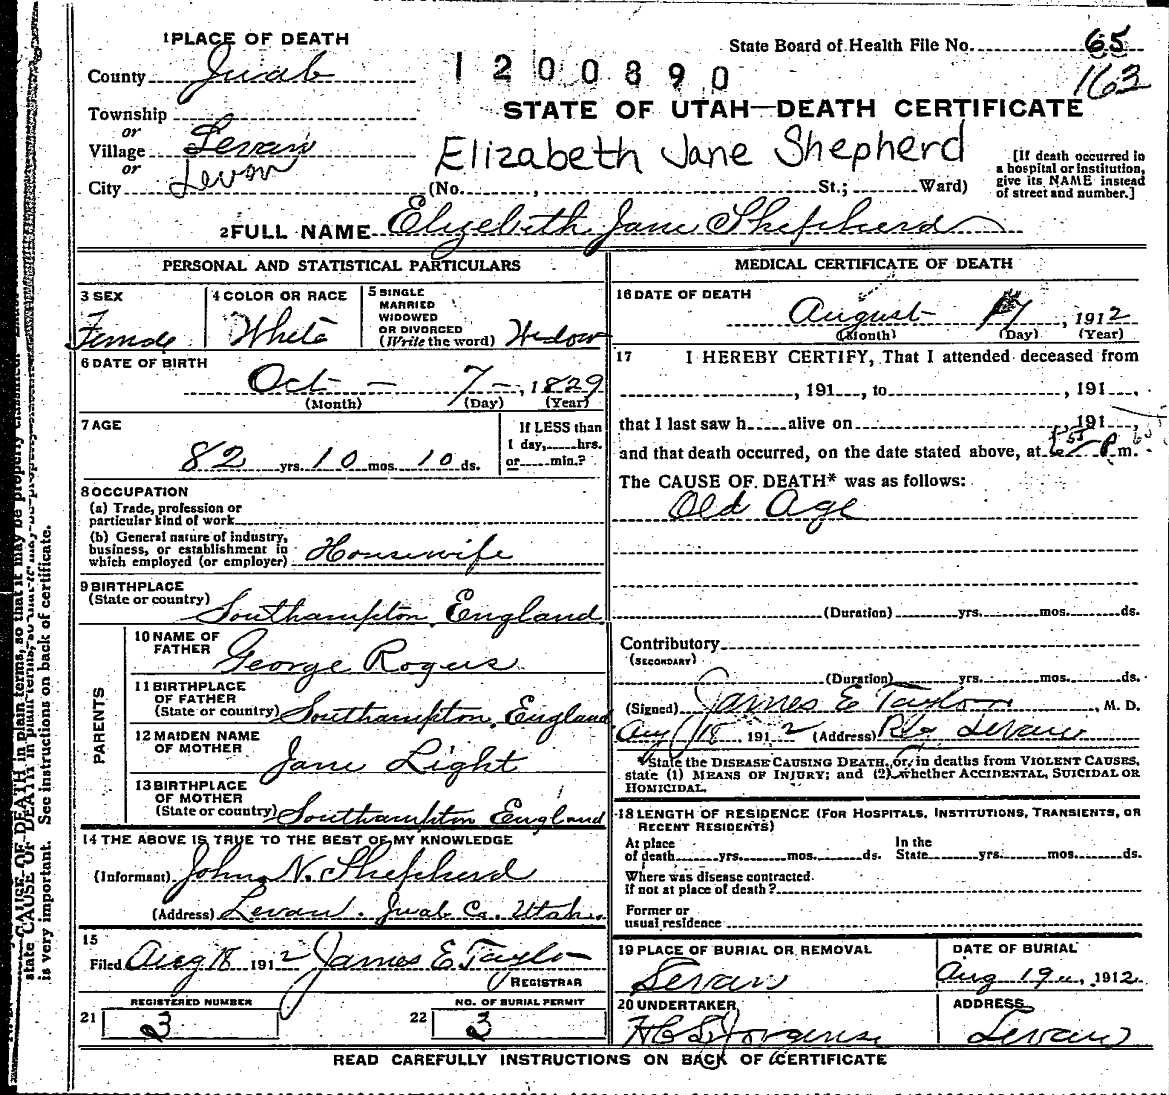 1 PLACE OF DEATH
State Board of Health File No. 65
163
County Juab
1200890
STATE OF UTAH—DEATH CERTIFICATE
Township
or
Village Levan
or
City Levan
Elizabeth Jane Shepherd
(No. , St.; Ward)
[If death occurred in
a hospital or institution,
give its NAME instead
of street and number.]
2 FULL NAME Elizebeth Jane Shepherd
PERSONAL AND STATISTICAL PARTICULARS
3 SEX
Female
4 COLOR OR RACE
White
5 SINGLE
MARRIED
WIDOWED
OR DIVORCED
(Write the word) Widow
6 DATE OF BIRTH
Oct - 7 - , 1829
(Month) (Day) (Year)
7 AGE
82 yrs. 10 mos. 10 ds.
If LESS than
1 day, hrs.
or min.?
8 OCCUPATION
(a) Trade, profession or
particular kind of work
(b) General nature of industry,
business, or establishment in
which employed (or employer) Housewife
9 BIRTHPLACE
(State or country) Southampton England
PARENTS
10 NAME OF
FATHER George Rogers
11 BIRTHPLACE
OF FATHER
(State or country) Southampton, England
12 MAIDEN NAME
OF MOTHER Jane Light
13 BIRTHPLACE
OF MOTHER
(State or country) Southampton England
14 THE ABOVE IS TRUE TO THE BEST OF MY KNOWLEDGE
(Informant) John N. Shepherd
(Address) Levan. Juab Co. Utah.
15
Filed Aug 18 1912 James E Taylor
REGISTRAR
REGISTERED NUMBER
21 3
NO. OF BURIAL PERMIT
22 3
MEDICAL CERTIFICATE OF DEATH
16 DATE OF DEATH
August 17, 1912
(Month) (Day) (Year)
17 I HEREBY CERTIFY, That I attended deceased from
, 191 , to , 191 ,
that I last saw h alive on , 191 ,
and that death occurred, on the date stated above, at P m.
The CAUSE OF DEATH* was as follows:
Old Age
(Duration) yrs. mos. ds.
Contributory
(SECONDARY)
(Duration) yrs. mos. ds.
(Signed) James E Taylor, M. D.
Aug 18, 1912 (Address) Levan
*State the DISEASE CAUSING DEATH, or, in deaths from VIOLENT CAUSES,
state (1) MEANS OF INJURY; and (2) whether ACCIDENTAL, SUICIDAL OR
HOMICIDAL.
18 LENGTH OF RESIDENCE (FOR HOSPITALS, INSTITUTIONS, TRANSIENTS, OR
RECENT RESIDENTS)
At place
of death yrs. mos. ds.
In the
State yrs. mos. ds.
Where was disease contracted
if not at place of death?
Former or
usual residence
19 PLACE OF BURIAL OR REMOVAL
Levan
DATE OF BURIAL
Aug 19, 1912
20 UNDERTAKER
ADDRESS
Levan
READ CAREFULLY INSTRUCTIONS ON BACK OF CERTIFICATE
CAUSE OF DEATH in plain terms, so that it may be properly classified.
state CAUSE OF DEATH in plain terms, so that it may be properly
is very important. See instructions on back of certificate.